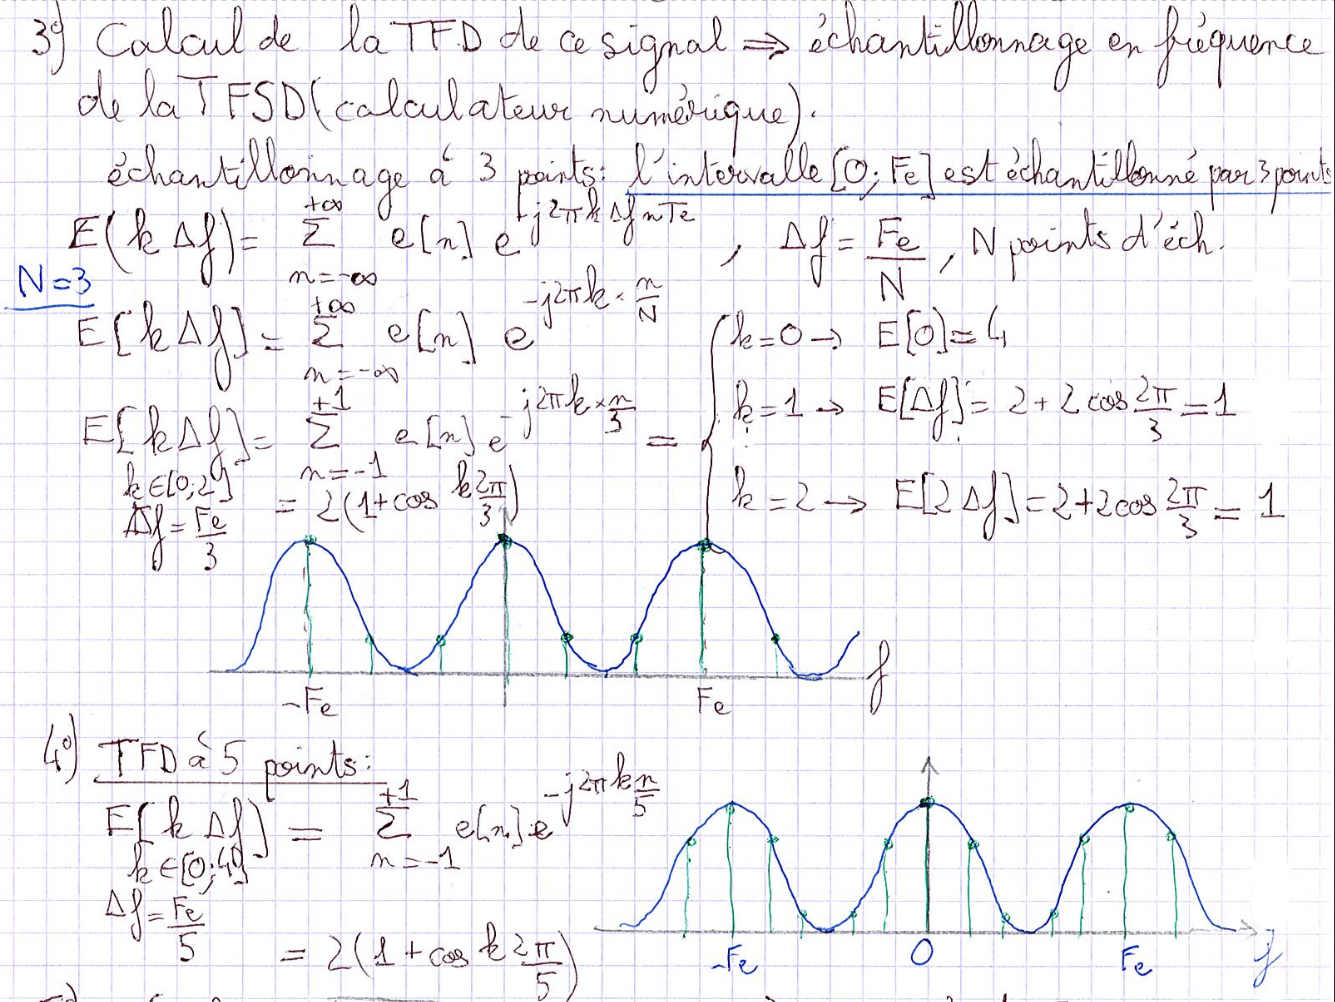 3°) Calcul de la TFD de ce signal ⇒ échantillonnage en fréquence
de la TFSD (calculateur numérique).
échantillonnage à 3 points: l'intervalle [0; Fe] est échantillonné par 3 points
E(kΔf) = Σ_{n=-∞}^{+∞} e[n] e^{-j2πkΔfnTe} , Δf = Fe/N , N points d'éch.
N=3
E[kΔf] = Σ_{n=-∞}^{+∞} e[n] e^{-j2πk×n/N}
k=0 → E[0]=4
E[kΔf] = Σ_{n=-1}^{+1} e[n] e^{-j2πk×n/3} =
k=1 → E[Δf] = 2+2cos 2π/3 = 1
k∈[0;2]
Δf = Fe/3
= 2(1+cos k2π/3)
k=2 → E[2Δf] = 2+2cos 2π/3 = 1
f
-Fe Fe
4°) TFD à 5 points:
E[kΔf] = Σ_{n=-1}^{+1} e[n].e^{-j2πkn/5}
k∈[0;4]
Δf = Fe/5
= 2(1+cos k2π/5)
-Fe 0 Fe f